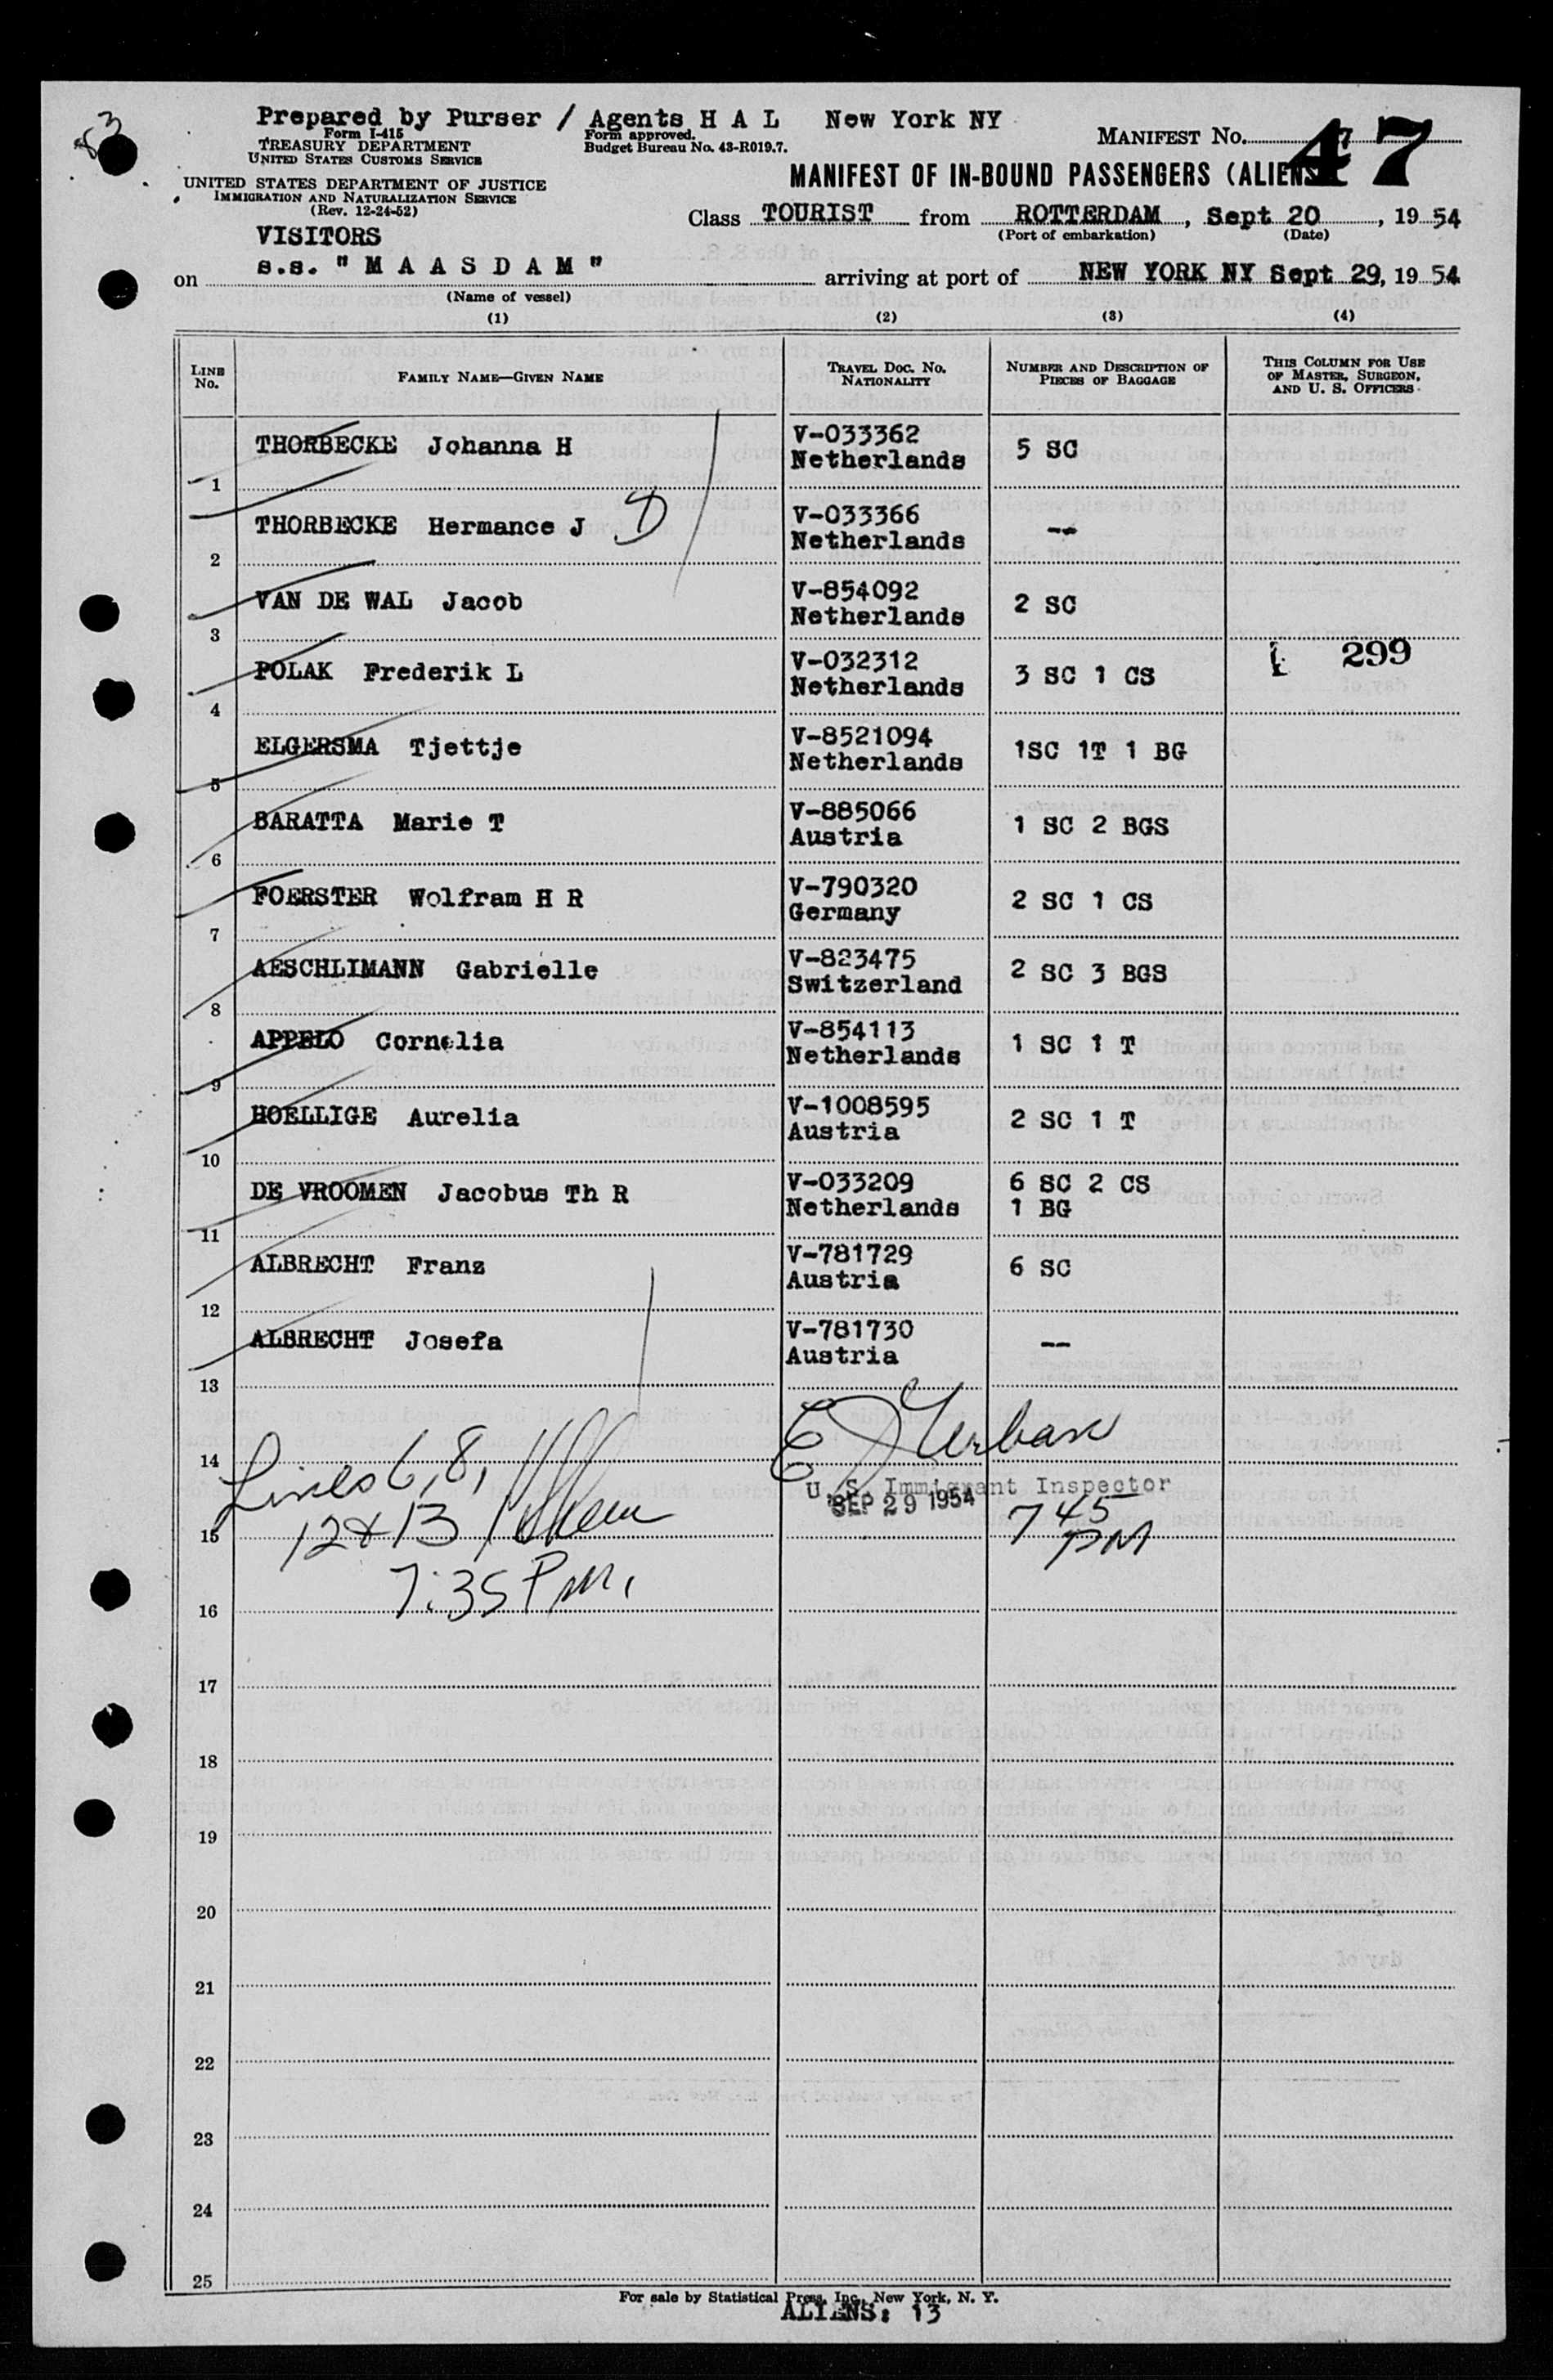 83
Prepared by Purser / Agents H A L New York NY
Form I-415
TREASURY DEPARTMENT
UNITED STATES CUSTOMS SERVICE
Form approved.
Budget Bureau No. 43-R019.7.
MANIFEST No. 7
47
UNITED STATES DEPARTMENT OF JUSTICE
IMMIGRATION AND NATURALIZATION SERVICE
(Rev. 12-24-52)
MANIFEST OF IN-BOUND PASSENGERS (ALIENS)
Class TOURIST from ROTTERDAM, Sept 20, 19 54
(Port of embarkation) (Date)
VISITORS
on s.s. " M A A S D A M " arriving at port of NEW YORK NY Sept 29, 19 54
(Name of vessel)
(1) (2) (3) (4)
LINE No. FAMILY NAME—GIVEN NAME TRAVEL DOC. NO. NATIONALITY NUMBER AND DESCRIPTION OF PIECES OF BAGGAGE THIS COLUMN FOR USE OF MASTER, SURGEON, AND U. S. OFFICERS
1 THORBECKE Johanna H V-033362 Netherlands 5 SC
2 THORBECKE Hermance J D V-033366 Netherlands --
3 VAN DE WAL Jacob V-854092 Netherlands 2 SC
4 POLAK Frederik L V-032312 Netherlands 3 SC 1 CS 299
5 ELGERSMA Tjettje V-8521094 Netherlands 1SC 1T 1 BG
6 BARATTA Marie T V-885066 Austria 1 SC 2 BGS
7 FOERSTER Wolfram H R V-790320 Germany 2 SC 1 CS
8 AESCHLIMANN Gabrielle V-823475 Switzerland 2 SC 3 BGS
9 APPELO Cornelia V-854113 Netherlands 1 SC 1 T
10 HOELLIGE Aurelia V-1008595 Austria 2 SC 1 T
11 DE VROOMEN Jacobus Th R V-033209 Netherlands 6 SC 2 CS 1 BG
12 ALBRECHT Franz V-781729 Austria 6 SC
13 ALBRECHT Josefa V-781730 Austria --
14 Lines 6, 8,
E J Urban
U. S. Immigrant Inspector
SEP 29 1954
7 45 PM
15 12 & 13
7:35 P.M.
16
17
18
19
20
21
22
23
24
25
For sale by Statistical Press, Inc., New York, N. Y.
ALIENS: 13